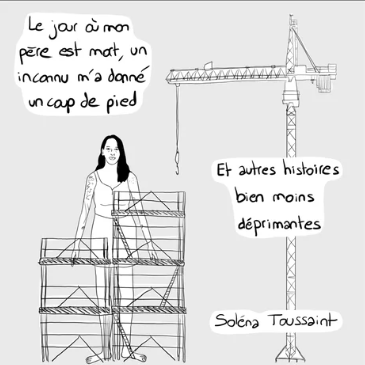 Le jour où mon
père est mort, un
inconnu m'a donné
un coup de pied
Et autres histoires
bien moins
déprimantes
Soléna Toussaint